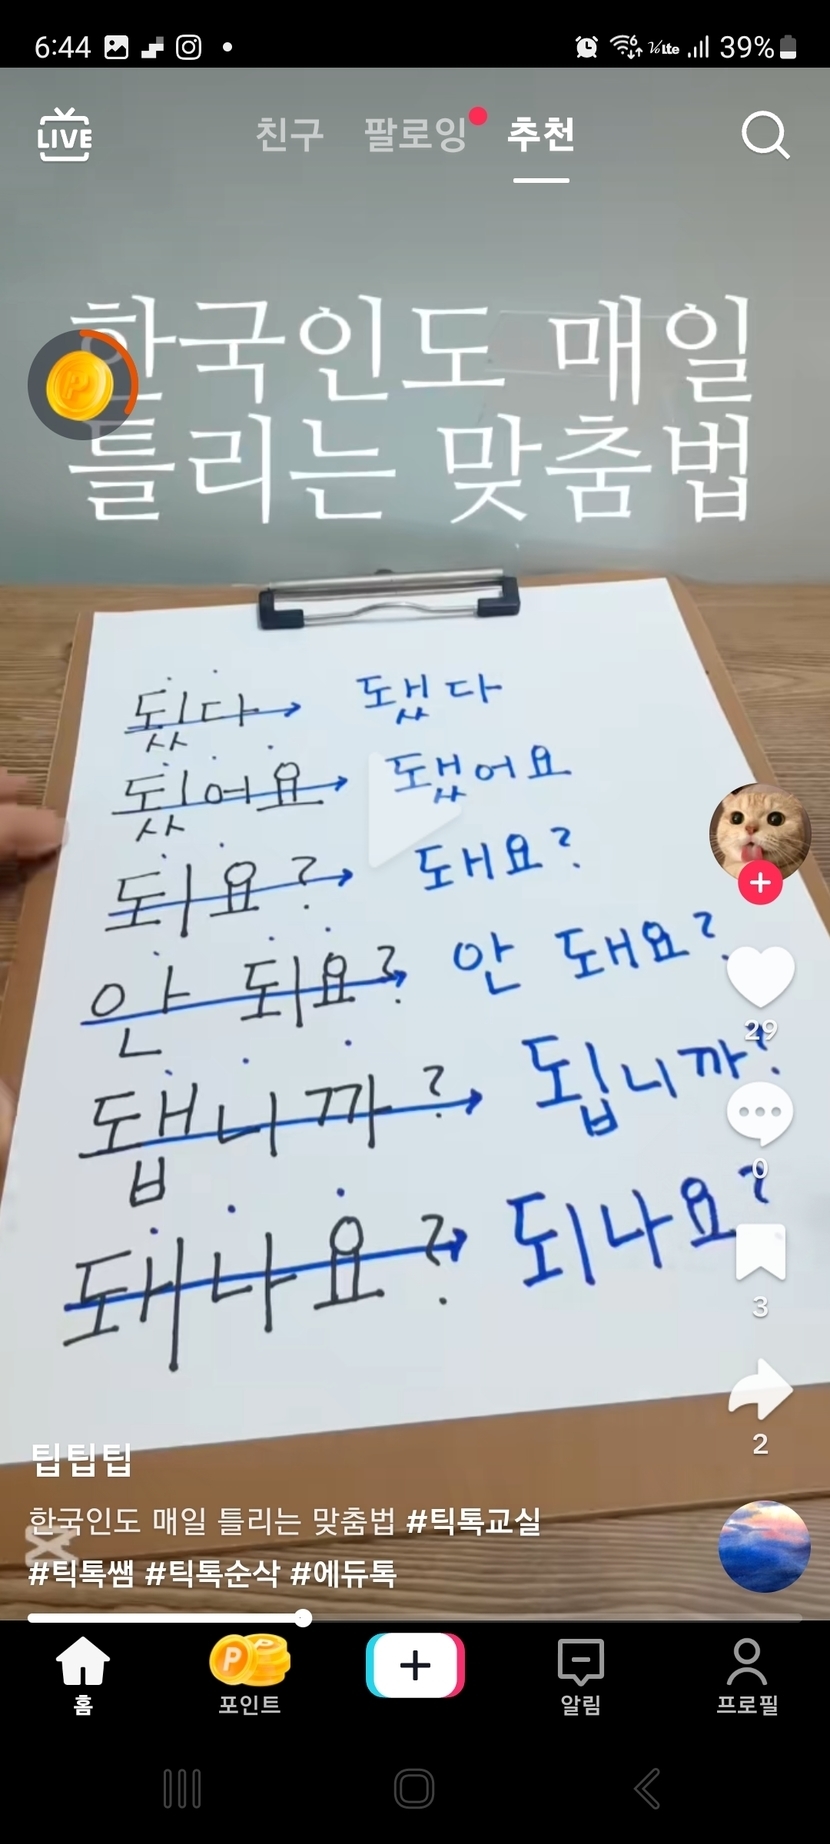 6:44 39%
LIVE 친구 팔로잉 추천
한국인도 매일
틀리는 맞춤법
됬다 → 됐다
됬어요 → 됐어요
되요? → 돼요?
안 되요? → 안 돼요?
됍니까? → 됩니까?
돼나요? → 되나요?
29
0
3
2
팁팁팁
한국인도 매일 틀리는 맞춤법 #틱톡교실
#틱톡쌤 #틱톡순삭 #에듀톡
홈 포인트 알림 프로필